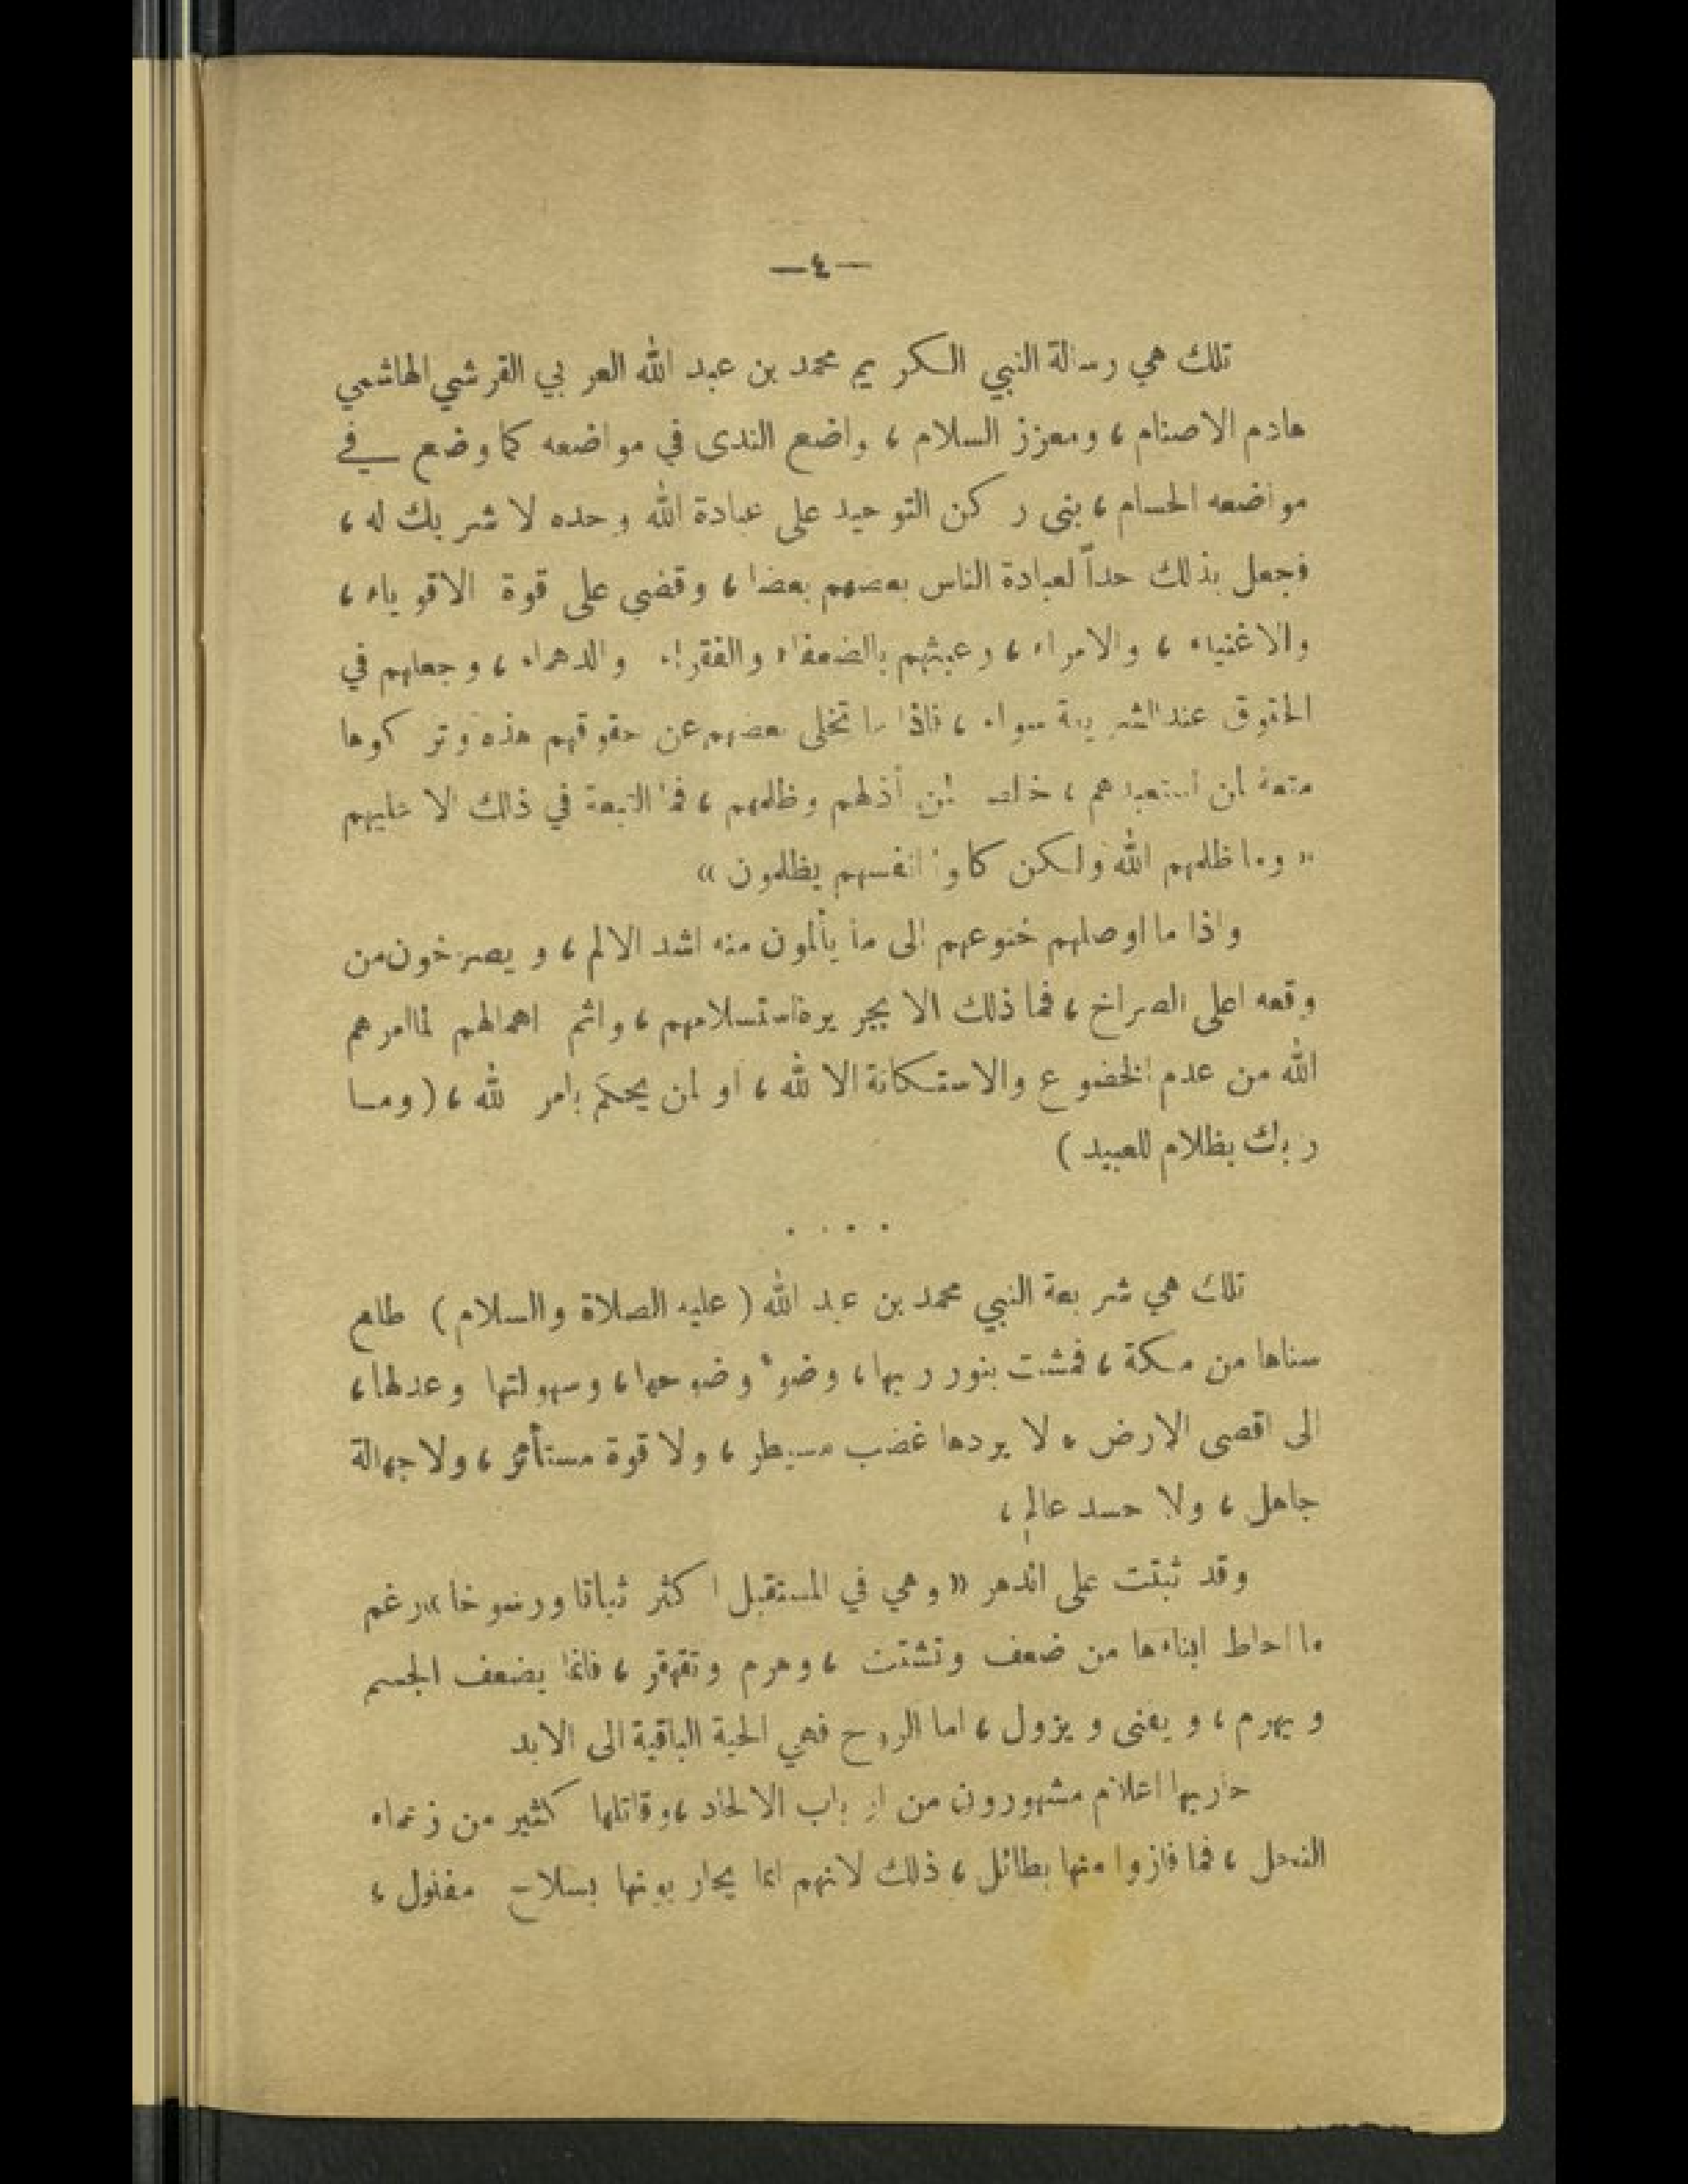 —٤—
تلك هي رسالة النبي الكريم محمد بن عبد الله العربي القرشي الهاشمي
هادم الاصنام ، ومعزز السلام ، واضع الندى في مواضعه كما وضع في
مواضعه الحسام ، بنى ركن التوحيد على عبادة الله وحده لا شريك له ،
فجعل بذلك حداً لعبادة الناس بعضهم بعضا ، وقضى على قوة الاقوياء ،
والاغنياء ، والامراء ، وعبثهم بالضعفاء والفقراء والدهماء ، وجعلهم في
الحقوق عند الشريعة سواء ، فاذا ما تخلى بعضهم عن حقوقهم هذه وتركوها
متعة لمن استعبدهم ، لمن أذلهم وظلمهم ، فما التبعة في ذلك الا عليهم
« وما ظلمهم الله ولكن كانوا انفسهم يظلمون »
واذا ما اوصلهم خنوعهم الى ما يألمون منه اشد الالم ، ويصرخون من
وقعه اعلى الصراخ ، فما ذلك الا بجريرة استسلامهم ، واثم اهمالهم لما امرهم
الله من عدم الخضوع والاستكانة الا لله ، او لمن يحكم بامر الله ، ( ومــا
ربك بظلام للعبيد )
. . . .
تلك هي شريعة النبي محمد بن عبد الله ( عليه الصلاة والسلام ) طلع
سناها من مكة ، فمشت بنور ربها ، وضوء وضوحها ، وسهولتها وعدلها ،
الى اقصى الارض ، لا يردها غضب مسيطر ، ولا قوة مستأثر ، ولا جهالة
جاهل ، ولا حسد عالم ،
وقد ثبتت على الدهر « وهي في المستقبل اكثر ثباتا ورسوخا » رغم
ما احاط ابناءها من ضعف وتشتت ، وهرم وتقهقر ، فانما يضعف الجسم
ويهرم ، ويفنى ويزول ، اما الروح فهي الحية الباقية الى الابد
حاربها اعلام مشهورون من ارباب الالحاد ، وقاتلها كثير من زعماء
النحل ، فما فازوا منها بطائل ، ذلك لانهم انما يحاربونها بسلاح مفلول ،